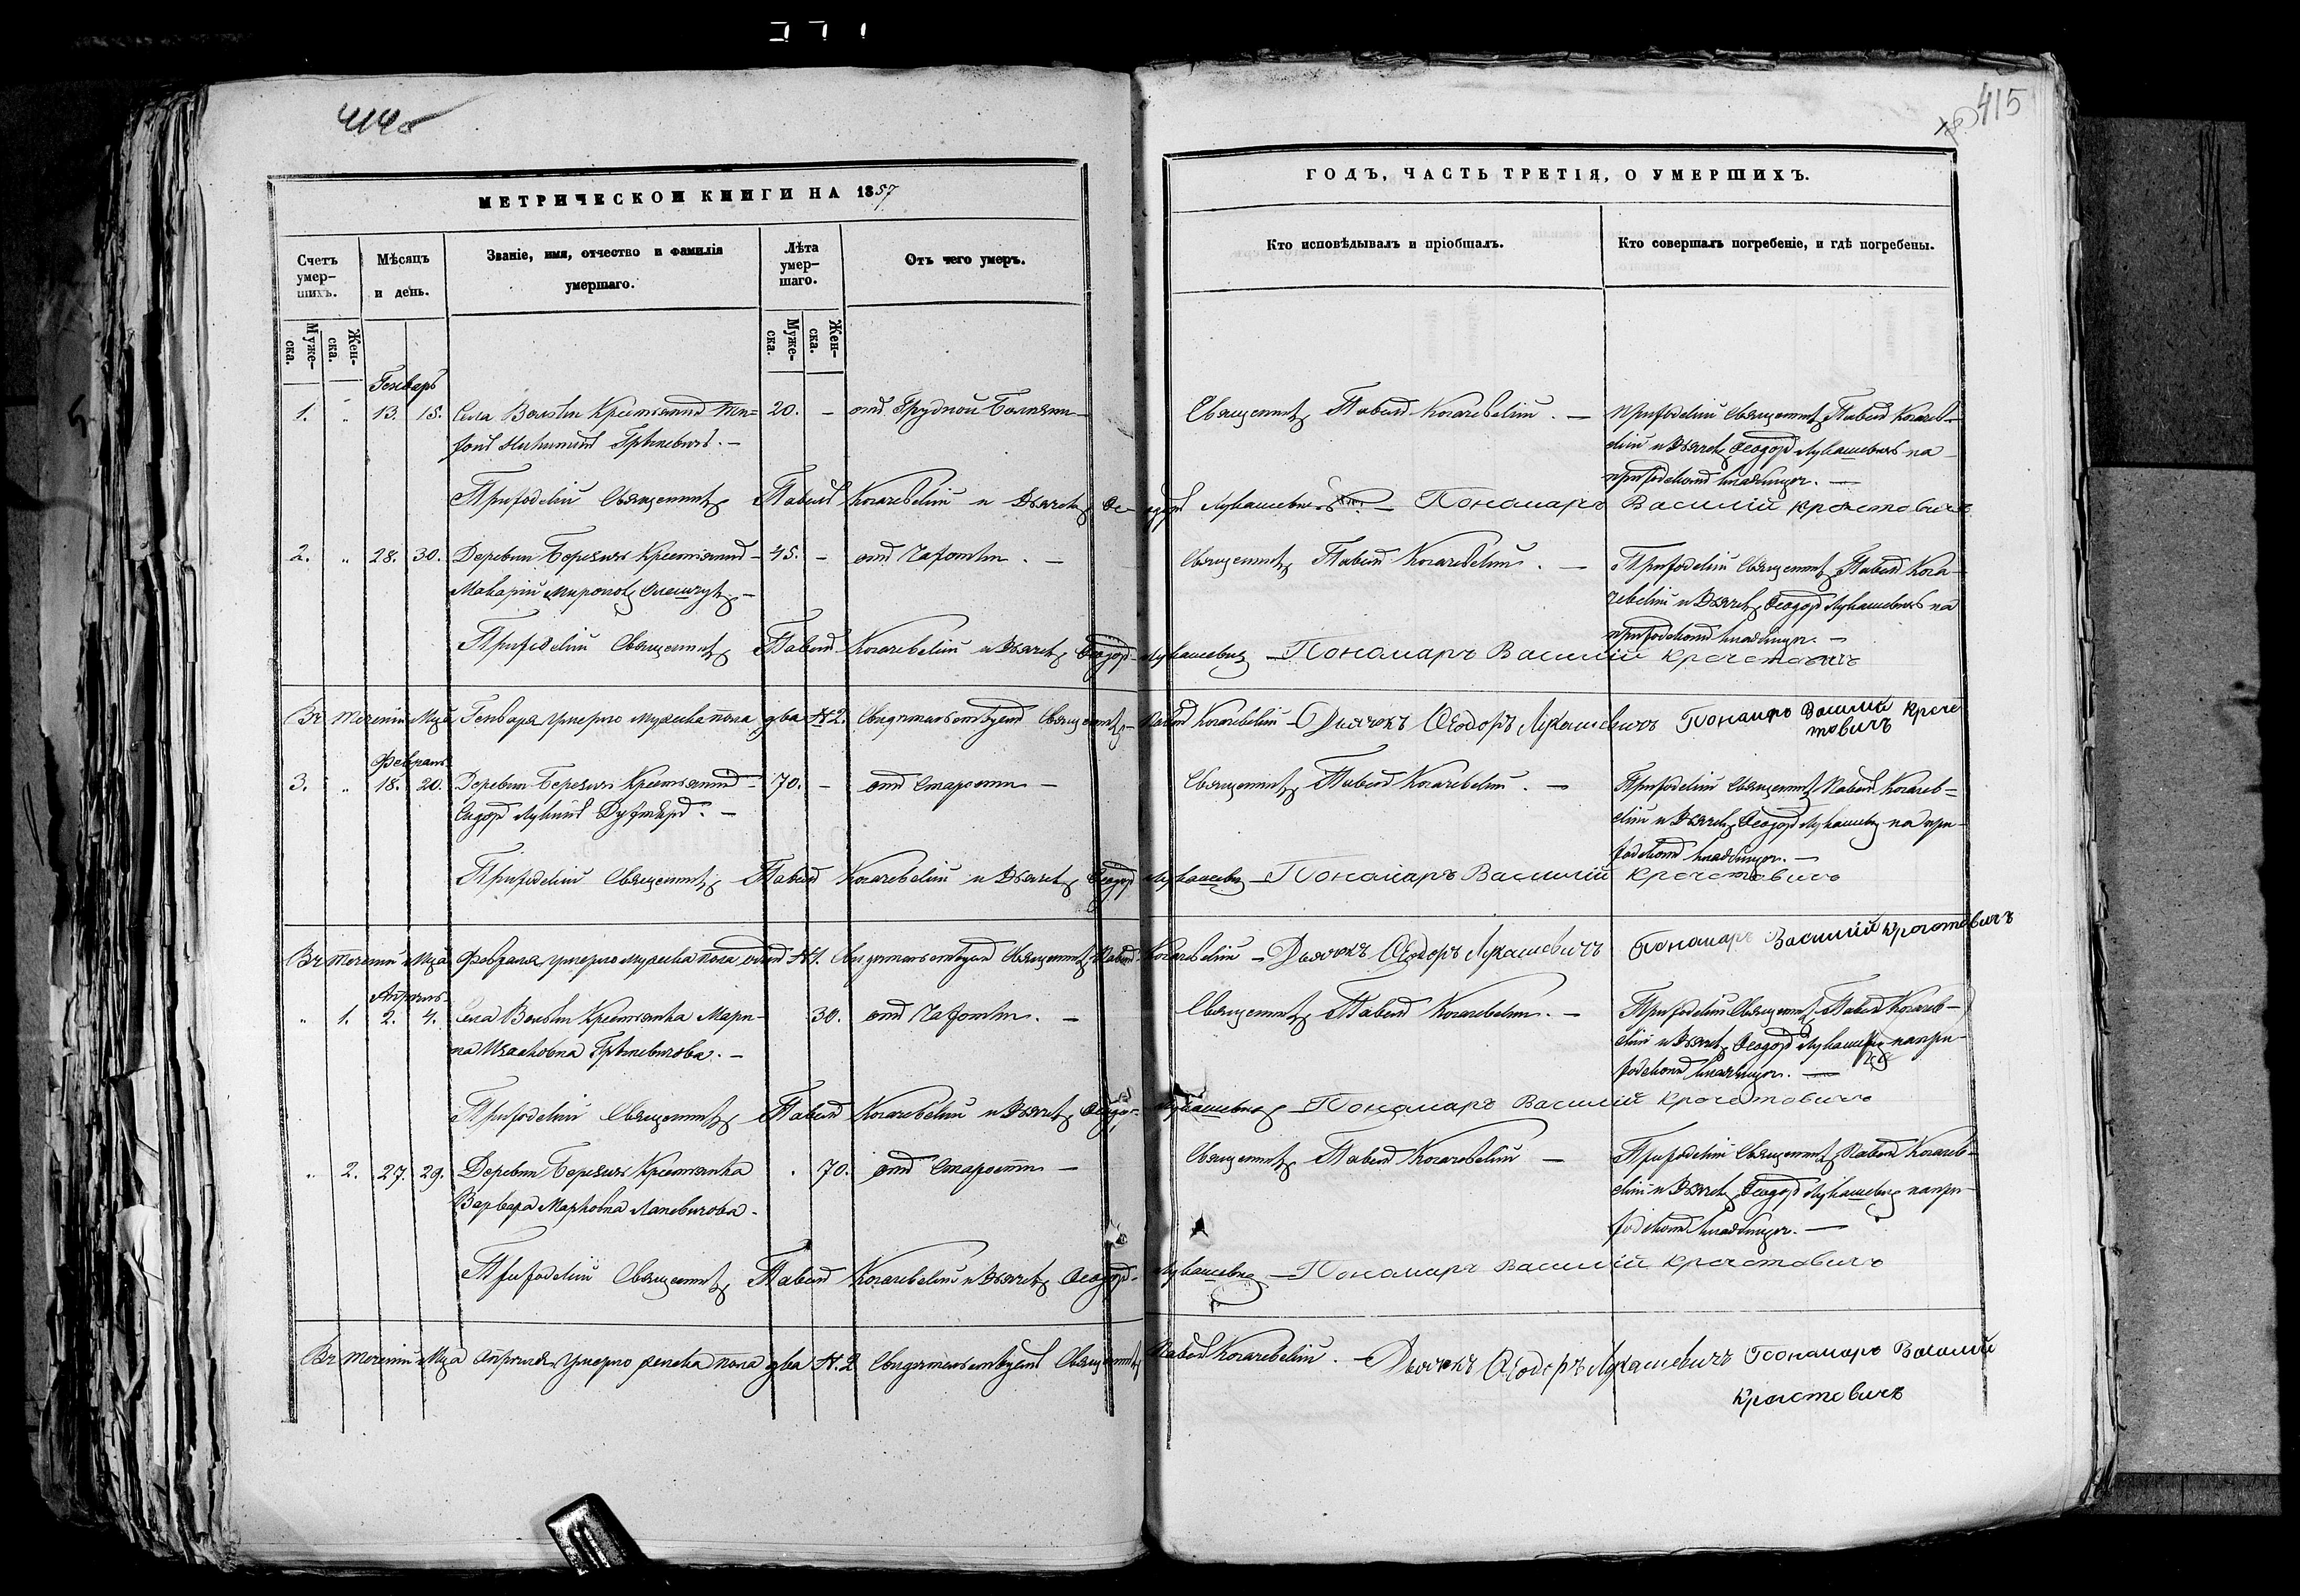 414об
415
МЕТРИЧЕСКОЙ КНИГИ НА 1857
ГОДЪ, ЧАСТЬ ТРЕТІЯ, О УМЕРШИХЪ.
Счетъ умер-шихъ.
Мѣсяцъ и день.
Званіе, имя, отчество и фамилія умершаго.
Лѣта умер-шаго.
Отъ чего умеръ.
Кто исповѣдывалъ и пріобщалъ.
Кто совершалъ погребеніе, и гдѣ погребены.
Муже-ска.
Жен-ска.
Муже-ска.
Жен-ска.
Генварь
1. „ 13. 15. Села крестьянинъ 20. – отъ грудной болѣзни – Священникъ Павелъ Когачевскій. – Приходскій Священникъ Павелъ Когачев-
Никитинъ . – скій и Дьячекъ Ѳеодоръ Лукашевичъ на
приходскомъ кладбищѣ. –
Приходскій Священникъ Павелъ Когачевскій и Дьячекъ Ѳеодоръ Лукашевичъ – Пономаръ Василій Крочстовичъ
2. „ 28. 30. Деревни Крестьянинъ – 45. – отъ чахотки. – Священникъ Павелъ Когачевскій. – Приходскій Священникъ Павелъ Кога-
Макарій Мироновъ Олешчукъ. – чевскій и Дьячекъ Ѳеодоръ Лукашевичъ на
приходскомъ кладбищѣ. –
Приходскій Священникъ Павелъ Когачевскій и Дьячекъ Ѳеодоръ Лукашевичъ – Пономаръ Василій Крочстовичъ
Въ теченіи Мца Генваря умерло мужска пола два № 2. Свидѣтельствуетъ Священникъ Павелъ Когачевскій – Дьячокъ Ѳеодоръ Лукашевичъ Пономаръ Василій Кроче
товичъ
Февраль
3. „ 18. 20. Деревни Крестьянинъ – 70. – отъ старости – Священникъ Павелъ Когачевскій. – Приходскій Священникъ Павелъ Когачев-
Сидоръ Лукинъ . – скій и Дьячекъ Ѳеодоръ Лукашевичъ на при-
ходскомъ кладбищѣ. –
Приходскій Священникъ Павелъ Когачевскій и Дьячекъ Ѳеодоръ Лукашевичъ – Пономаръ Василій Крочстовичъ
Въ теченіи Мца Февраля умерло мужска пола одинъ № 1. Свидѣтельствуетъ Священникъ Павелъ Когачевскій – Дьячокъ Ѳеодоръ Лукашевичъ Пономаръ Василій Крочстовичъ
Апрѣль
„ 1. 2. 4. Села Крестьянка Мари- 30. отъ чахотки. – Священникъ Павелъ Когачевскій. – Приходскій Священникъ Павелъ Когачев-
на . – скій и Дьячекъ Ѳеодоръ Лукашевичъ на при-
ходскомъ кладбищѣ. –
Приходскій Священникъ Павелъ Когачевскій и Дьячекъ Ѳеодоръ Лукашевичъ – Пономаръ Василій Крочстовичъ
„ 2. 27. 29. Деревни Крестьянка . 70. отъ старости – Священникъ Павелъ Когачевскій – Приходскій Священникъ Павелъ Когачев-
Варвара Марковна Лапевичова. скій и Дьячекъ Ѳеодоръ Лукашевичъ на при-
ходскомъ кладбищѣ. –
Приходскій Священникъ Павелъ Когачевскій и Дьячекъ Ѳеодоръ Лукашевичъ – Пономаръ Василій Крочстовичъ
Въ теченіи Мца Апрѣля умерло женска пола два № 2 Свидѣтельствуетъ Священникъ Павелъ Когачевскій. – Дьячокъ Ѳеодоръ Лукашевичъ Пономаръ Василій
Крочстовичъ